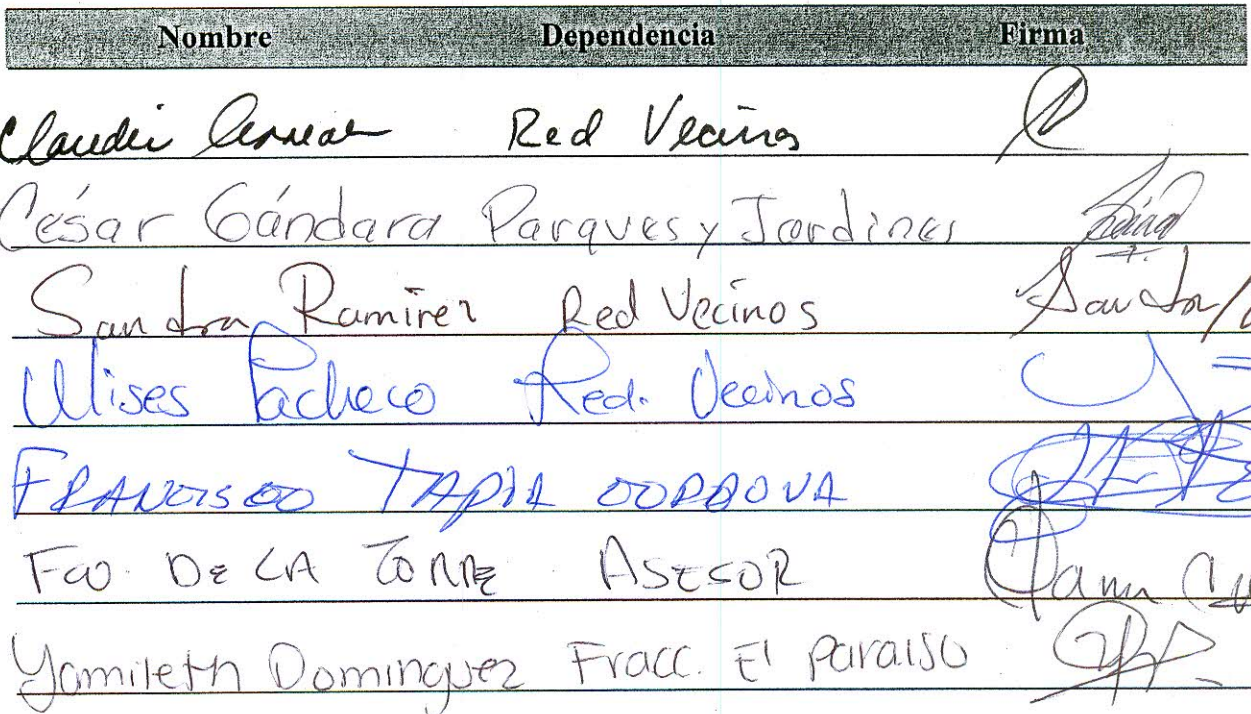 Nombre Dependencia Firma
Claudia Red Vecinos
César Gándara Parques y Jardines
Sandra Ramirez Red Vecinos Sandra
Ulises Pacheco Red. Vecinos
FRANCISCO TAPIA CORDOVA
Fco. DE LA TORRE ASESOR
Yamileth Dominguez Fracc. El paraiso